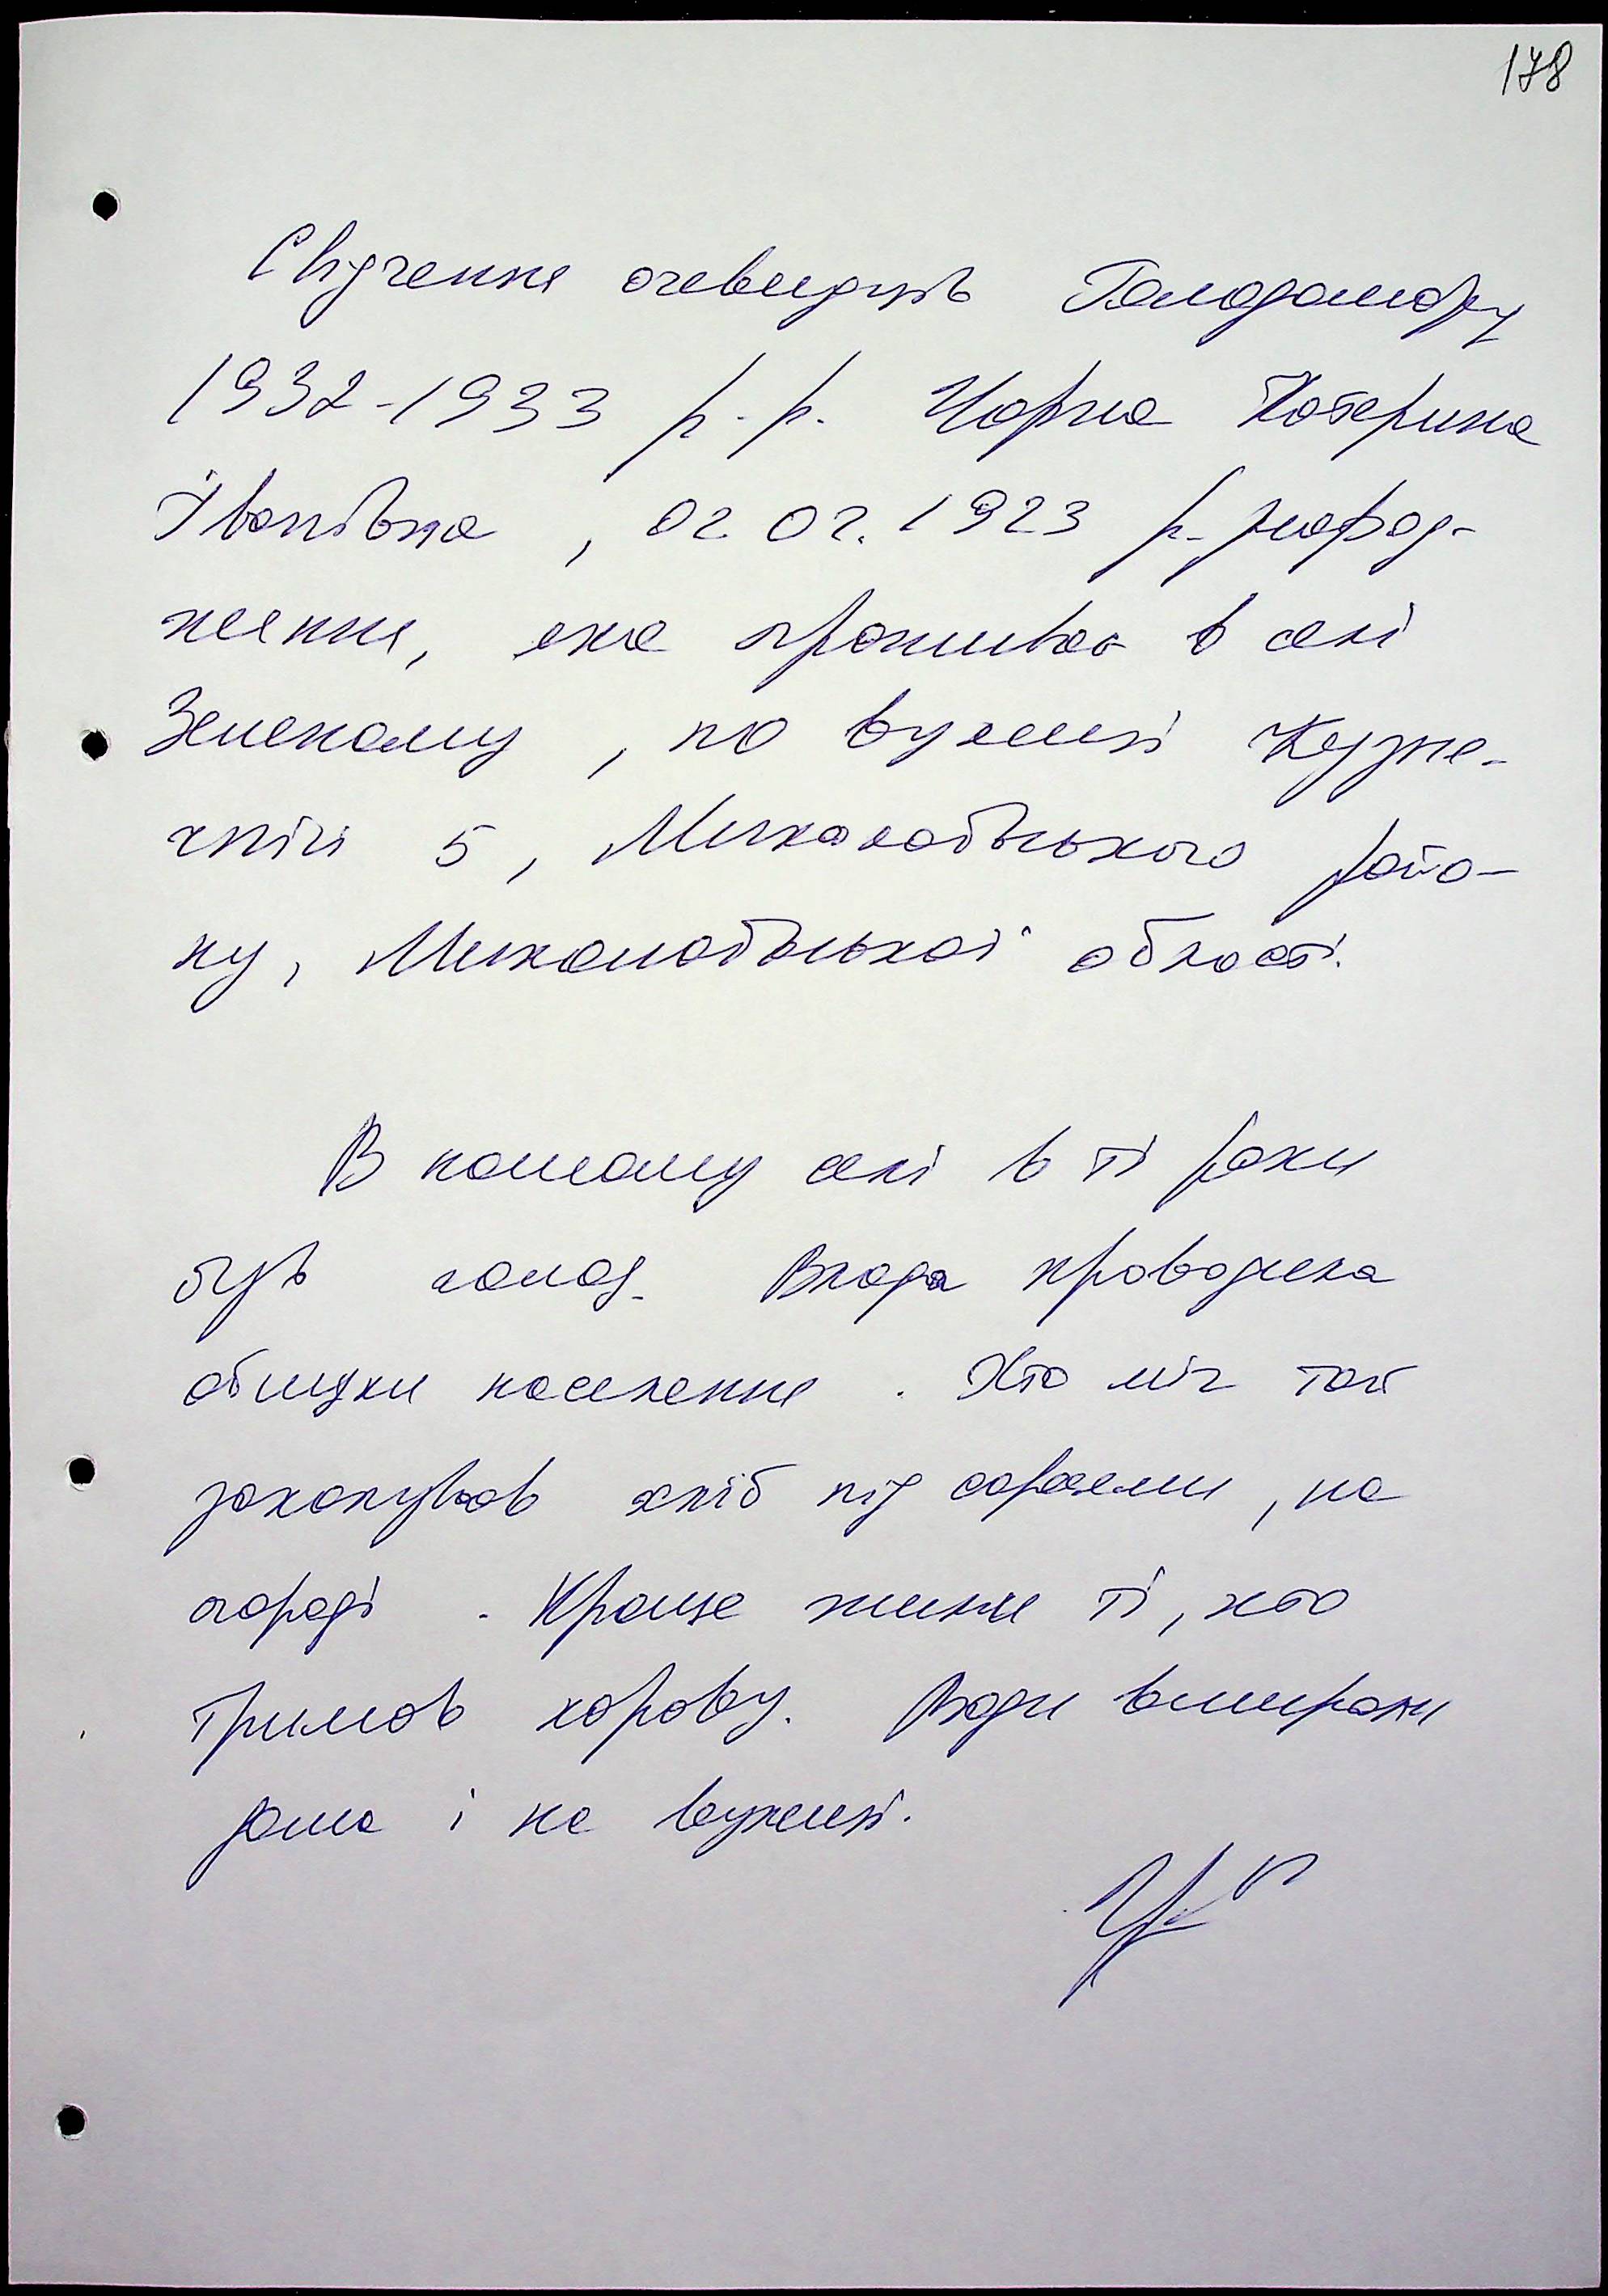 178
Свідчення очевидців Голодомору
1932-1933 р.р. Чорна Катерина
Іванівна, 02.02.1923 р. народ-
ження, яка проживає в селі
Зеленому, по вулиці Кузне-
чній 5, Миколаївського райо-
ну, Миколаївської області.
В нашому селі в ті роки
був голод. Влада проводила
обшуки населення. Хто міг той
закопував хліб під сараями, на
городі. Краще жили ті, хто
тримав корову. Люди вмирали
дома і на вулиці.